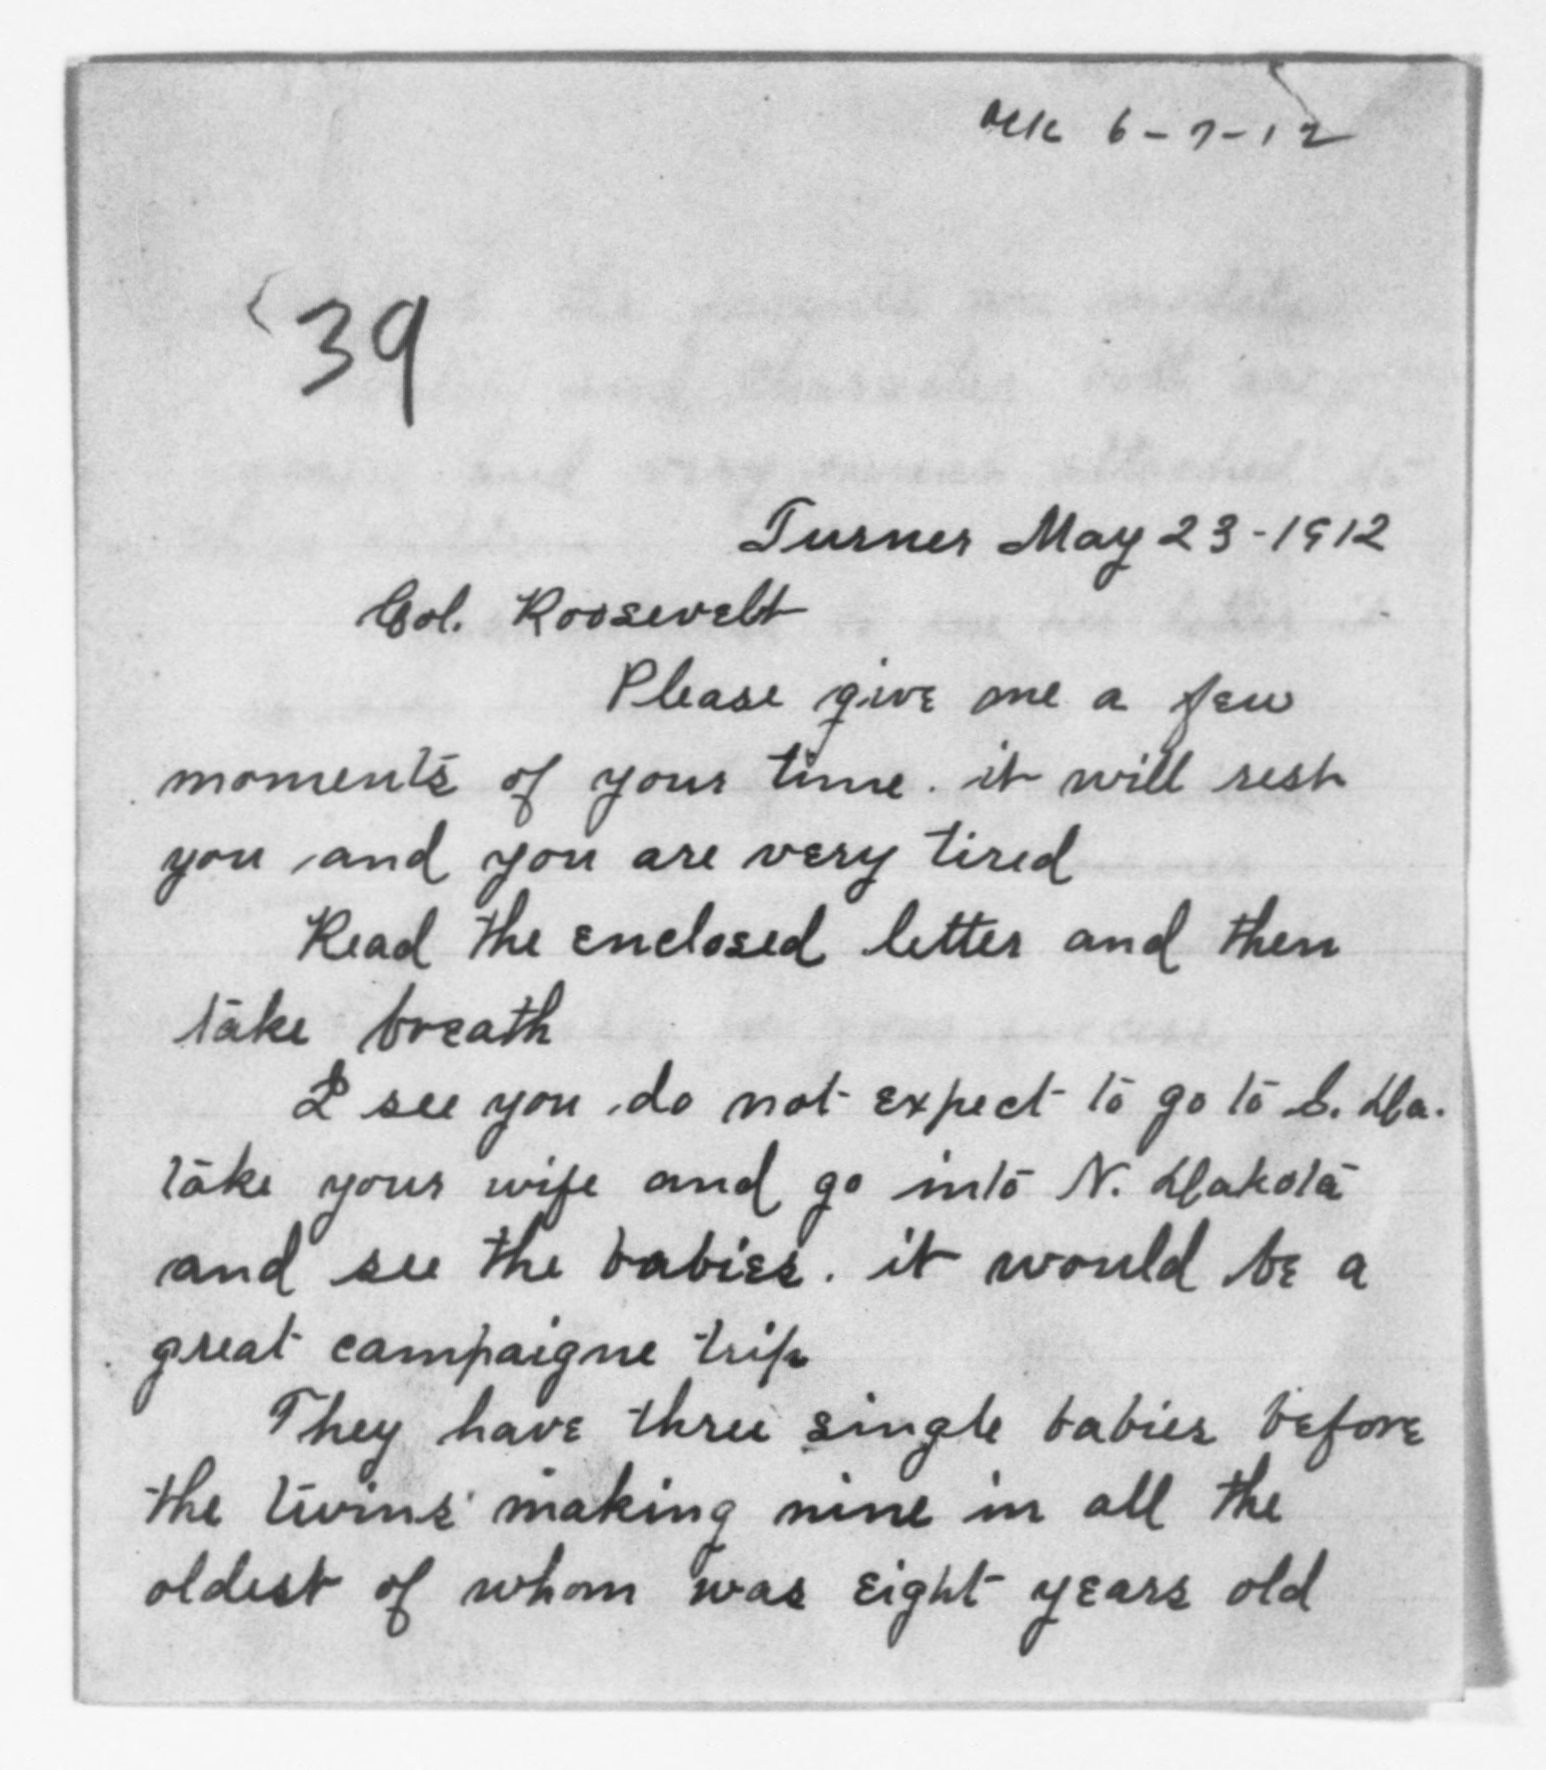 Ack 6-7-12
39
Turner May 23-1912
Col. Roosevelt
Please give me a few
moments of your time. it will rest
you and you are very tired
Read the enclosed letter and then
take breath
I see you do not expect to go to S. Da.
take your wife and go into N. Dakota
and see the babies. it would be a
great campaigne trip
They have three single babies before
the twins making nine in all the
oldest of whom was eight years old